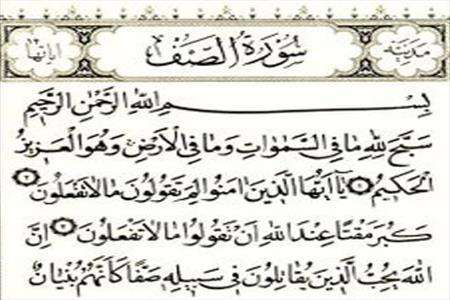 مدنية سُورَةُ الصَّفّ اياتها
بِسْمِ اللهِ الرَّحْمٰنِ الرَّحِيمِ
سَبَّحَ لِلّٰهِ مَا فِي السَّمٰوَاتِ وَمَا فِي الْاَرْضِ وَهُوَ الْعَزِيزُ
الْحَكِيمُ يَآ اَيُّهَا الَّذِينَ اٰمَنُوا لِمَ تَقُولُونَ مَا لَا تَفْعَلُونَ
كَبُرَ مَقْتًا عِنْدَ اللهِ اَنْ تَقُولُوا مَا لَا تَفْعَلُونَ اِنَّ
اللهَ يُحِبُّ الَّذِينَ يُقَاتِلُونَ فِي سَبِيلِهِ صَفًّا كَاَنَّهُمْ بُنْيَانٌ